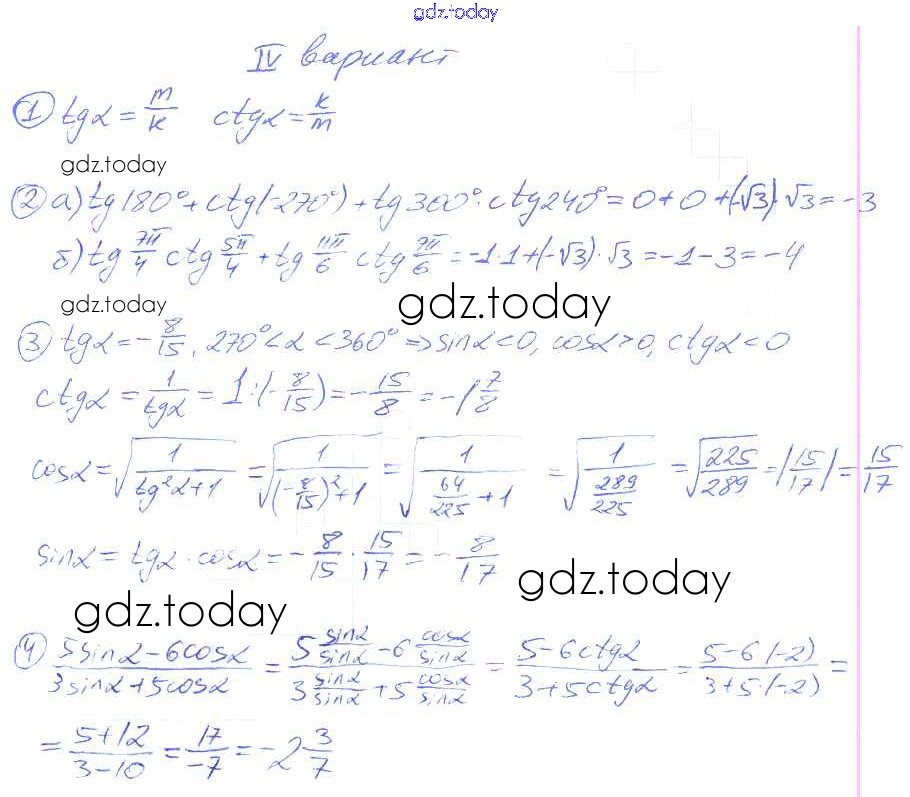 gdz.today
IV вариант
① tgα = m/k   ctgα = k/m
gdz.today
② а) tg 180° + ctg(-270°) + tg 300° · ctg 240° = 0 + 0 + (-√3) · √3 = -3
б) tg 7π/4 ctg 5π/4 + tg 11π/6 ctg 9π/6 = -1 · 1 + (-√3) · √3 = -1 - 3 = -4
gdz.today gdz.today
③ tgα = -8/15, 270° < α < 360° ⇒ sinα < 0, cosα > 0, ctgα < 0
ctgα = 1/tgα = 1 : (-8/15) = -15/8 = -1 7/8
cosα = √(1/(tg²α + 1)) = √(1/((-8/15)² + 1)) = √(1/(64/225 + 1)) = √(1/(289/225)) = √(225/289) = |15/17| = 15/17
sinα = tgα · cosα = -8/15 · 15/17 = -8/17
gdz.today gdz.today
④ (5 sinα - 6 cosα)/(3 sinα + 5 cosα) = (5 sinα/sinα - 6 cosα/sinα)/(3 sinα/sinα + 5 cosα/sinα) = (5 - 6 ctgα)/(3 + 5 ctgα) = (5 - 6·(-2))/(3 + 5·(-2)) =
= (5 + 12)/(3 - 10) = 17/-7 = -2 3/7